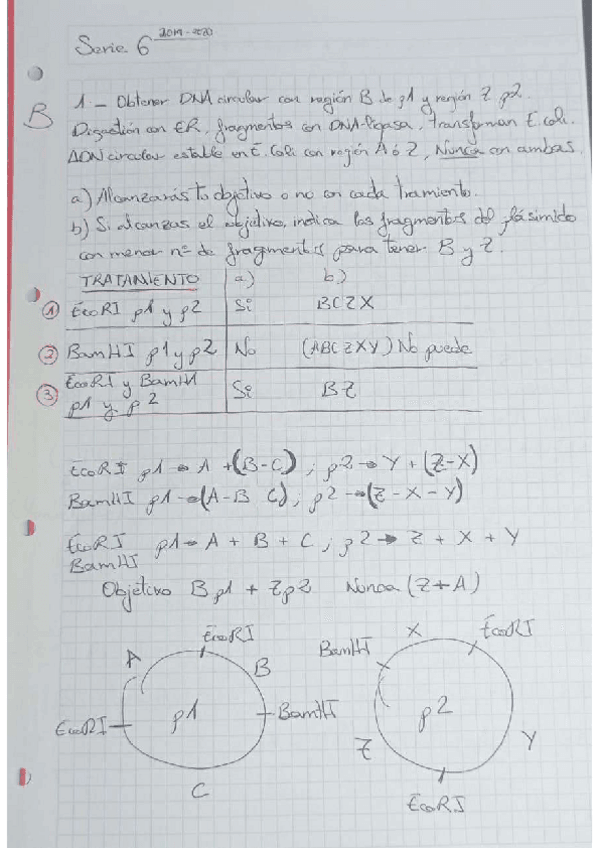 Serie 6 2019-2020
B
1.- Obtener DNA circular con región B de p1 y región Z p2.
Digestión con ER, fragmentos con DNA-ligasa, transforman E.coli.
ADN circular estable en E. Coli con región A ó Z, Nunca con ambas.
a) Alcanzarás tu objetivo o no con cada tramiento.
b) Si alcanzas el objetivo, indica los fragmentos del plásmido
con menor nº de fragmentos para tener B y Z.
TRATAMIENTO a) b)
① EcoRI p1 y p2 Si BCZX
② BamHI p1 y p2 No (ABCZXY) No puede
③ EcoRI y BamHI
p1 y p2 Si BZ
EcoRI p1 → A + (B-C) ; p2 → Y + (Z-X)
BamHI p1 → (A-B C), p2 → (Z-X-Y)
EcoRI p1 → A + B + C ; p2 → Z + X + Y
BamHI
Objetivo B p1 + Z p2 Nunca (Z+A)
EcoRI
A
B
EcoRI
p1
BamHI
C
X
EcoRI
BamHI
p2
Z
Y
EcoRI